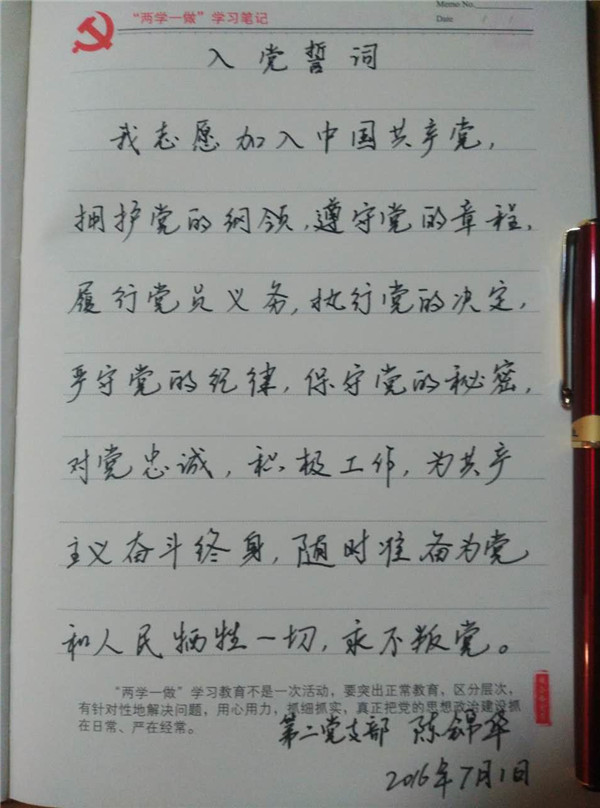 “两学一做”学习笔记
Memo No.
Date / /
入党誓词
我志愿加入中国共产党，
拥护党的纲领，遵守党的章程，
履行党员义务，执行党的决定，
严守党的纪律，保守党的秘密，
对党忠诚，积极工作，为共产
主义奋斗终身，随时准备为党
和人民牺牲一切，永不叛党。
“两学一做”学习教育不是一次活动，要突出正常教育，区分层次，
有针对性地解决问题，用心用力，抓细抓实，真正把党的思想政治建设抓
在日常、严在经常。
第二党支部 陈锦华
2016年7月1日